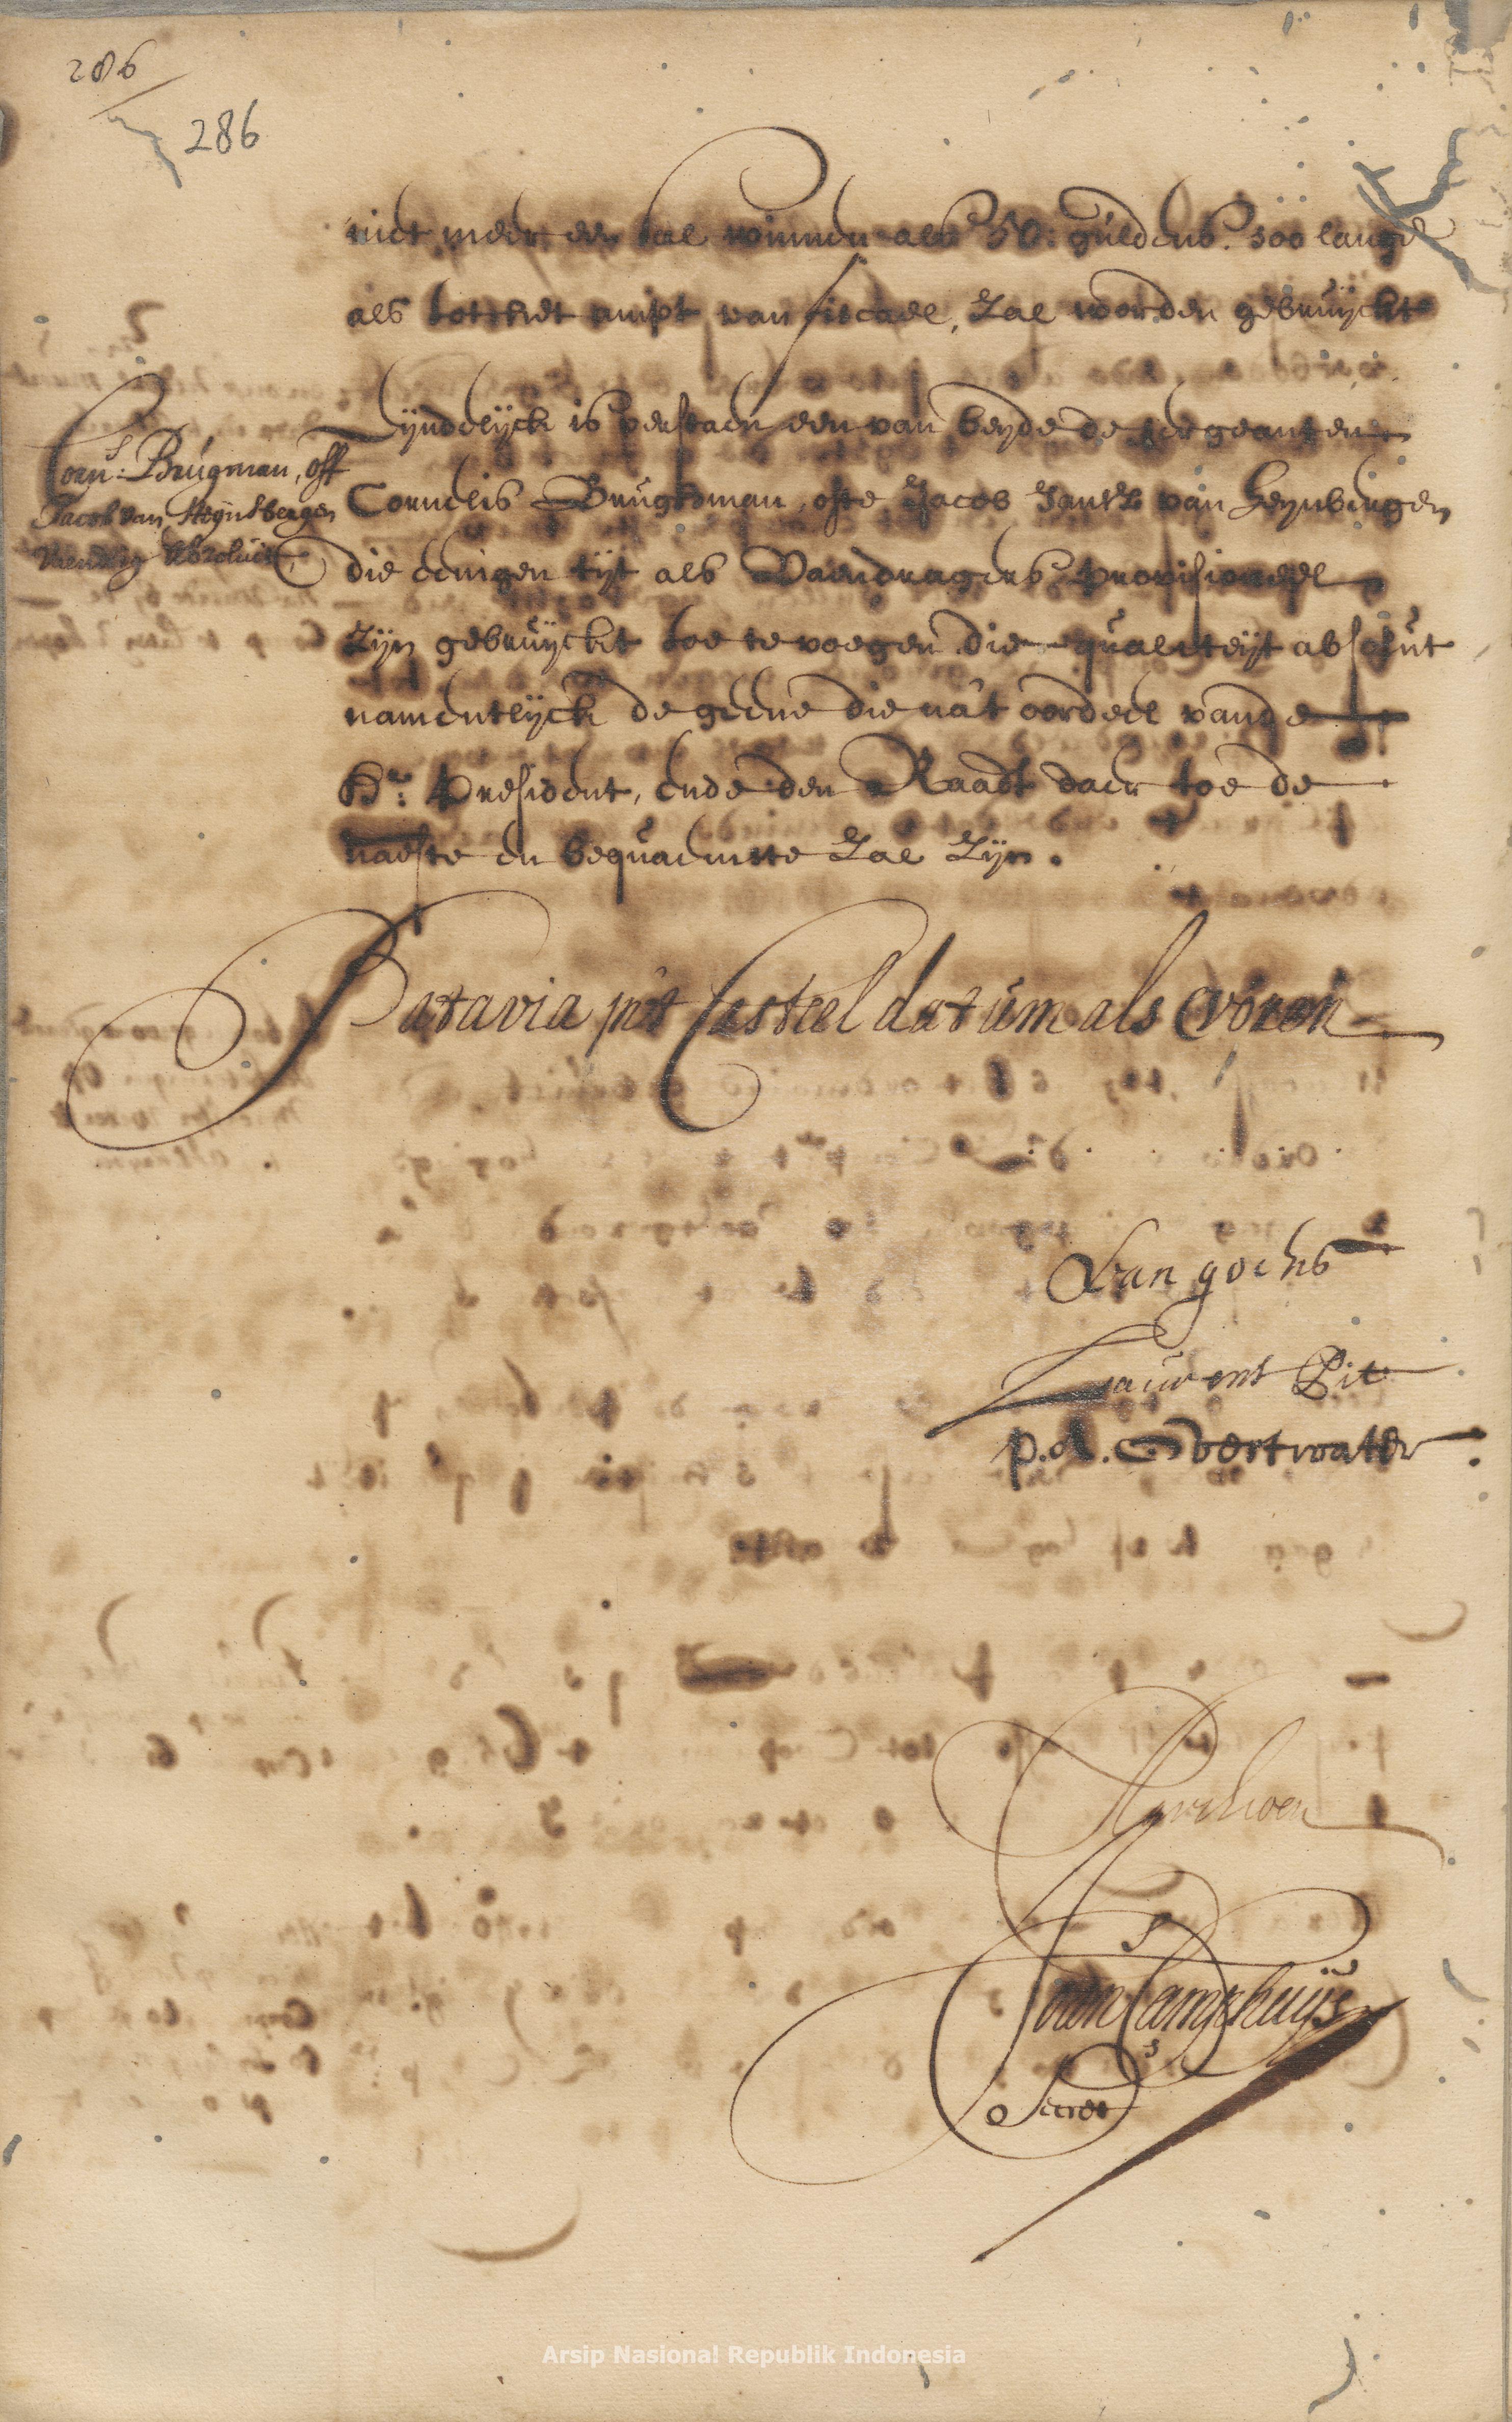 286
286
niet meer en sal winnen als 50: guldens. soo lange
als tot het ampt van fiscael, zal worden gebruijckt
Corn:s Brugman, off
Jacob van Heijnsbergen
vaendrig absoluit
Eijndelijck is verstaen een van beijde de sergeanten
Cornelis Brugman, ofte Jacob Jansz van Heynbergen
die eenigen tijt als Vaendragers provisioneel
zijn gebruijckt toe te voegen die qualiteijt absolut
namentlijck de geene die nā't oordeel vande
Hr: President, ende den Raadt daer toe de
naeste en bequaemste zal zijn.
Batavia int Casteel datum als voren
Van goens
Laurens Pit
p. A. Overtwater
Joan Camphuijs
Secrets
Arsip Nasional Republik Indonesia